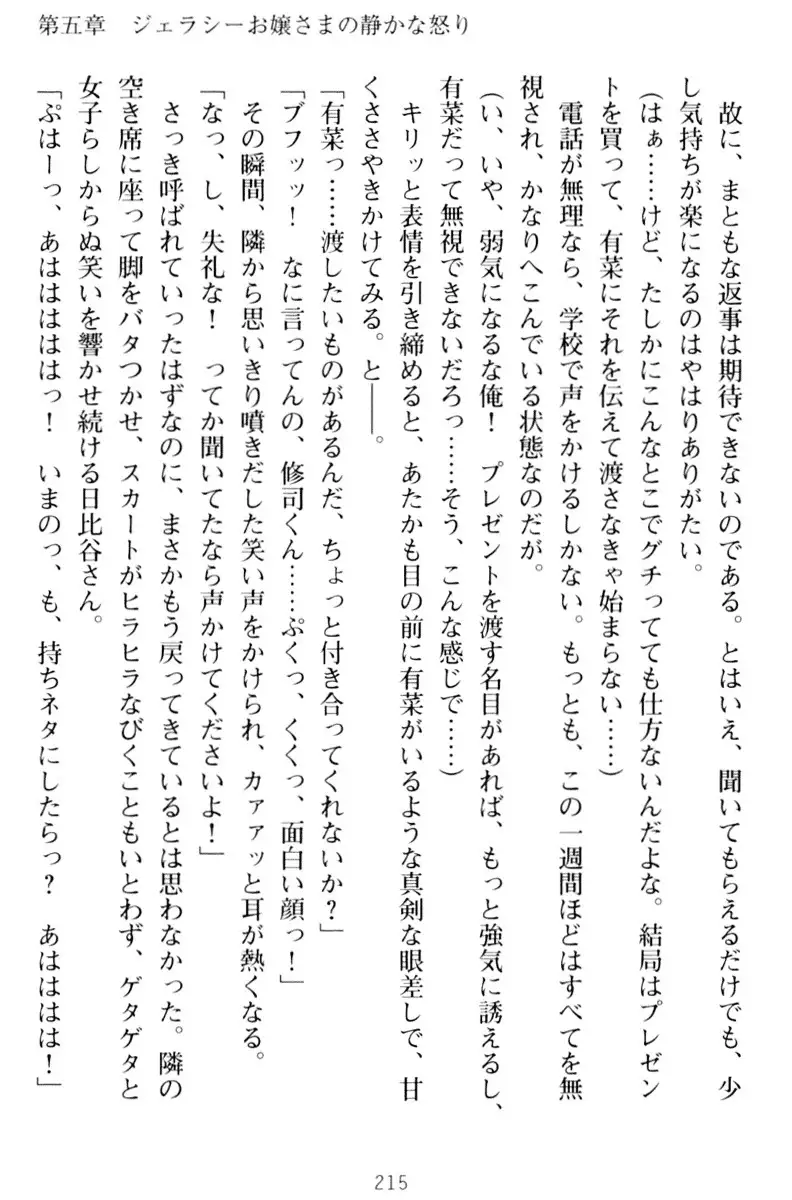 第五章　ジェラシーお嬢さまの静かな怒り
　故に、まともな返事は期待できないのである。とはいえ、聞いてもらえるだけでも、少
し気持ちが楽になるのはやはりありがたい。
（はぁ……けど、たしかにこんなとこでグチってても仕方ないんだよな。結局はプレゼン
トを買って、有菜にそれを伝えて渡さなきゃ始まらない……）
　電話が無理なら、学校で声をかけるしかない。もっとも、この一週間ほどはすべてを無
視され、かなりへこんでいる状態なのだが。
（い、いや、弱気になるな俺！　プレゼントを渡す名目があれば、もっと強気に誘えるし、
有菜だって無視できないだろっ……そう、こんな感じで……）
　キリッと表情を引き締めると、あたかも目の前に有菜がいるような真剣な眼差しで、甘
くささやきかけてみる。と――。
「有菜っ……渡したいものがあるんだ、ちょっと付き合ってくれないか？」
「ブフッッ！　なに言ってんの、修司くん……ぷくっ、くくっ、面白い顔っ！」
　その瞬間、隣から思いきり噴きだした笑い声をかけられ、カァァッと耳が熱くなる。
「なっ、し、失礼な！　ってか聞いてたなら声かけてくださいよ！」
　さっき呼ばれていったはずなのに、まさかもう戻ってきているとは思わなかった。隣の
空き席に座って脚をバタつかせ、スカートがヒラヒラなびくこともいとわず、ゲタゲタと
女子らしからぬ笑いを響かせ続ける日比谷さん。
「ぷはーっ、あはははははっ！　いまのっ、も、持ちネタにしたらっ？　あはははは！」
215